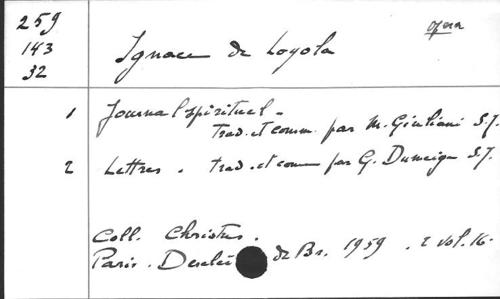 259 opera
143 Ignace de Loyola
32
1 Journal spirituel -
trad. et comm. par M. Giuliani S.J.
2 Lettres . trad. et comm par G. Dumeige S.J.
Coll. Christus .
Paris . Desclée de Br. 1959 . 2 vol. 16-